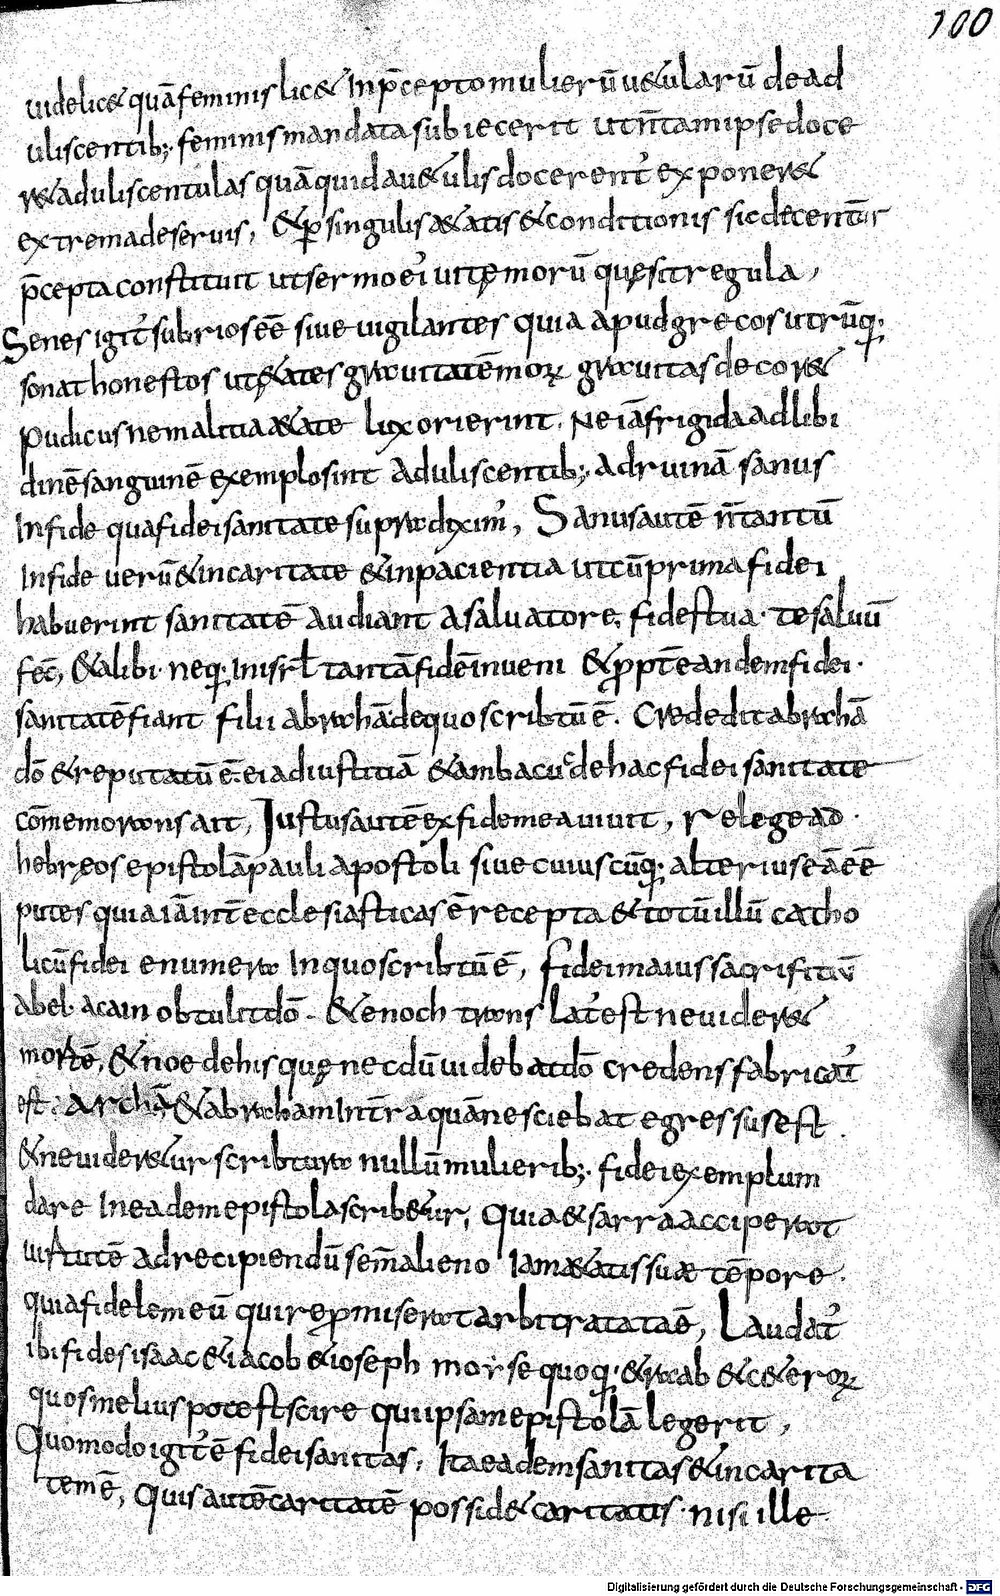 100
uidelic& quā feminis lic& In p̄cepto mulierū u&ularū de ad
uliscentib; feminis mandata subiecerit ut n̄ tam ipse doce
r& aduliscentulas quā quid au& ulis docerent' exponer&
extrema de seruis, & p singulis a&atis & conditionis sic decentur
p̄cepta constituit ut sermo ei' uitę morū quęsit regula,
Senes igit' subrios eē siue uigilantes quia apud grecos utrūq;
sonat honestos ut &ates grauitatē moꝝ grauitas decor&
pudicus ne malitia a&ate luxorierint. Ne iā frigida ad libi
dinē sanguinē exemplo sint aduliscentib; ad ruinā sanus
In fide qua fidei sanitate supra dixim', Sanus autē n̄ tantū
In fide uerū & in caritate & in pacientia ut cū prima fidei
habuerint sanitatē audiant a saluatore, fides tua te saluū
fec̄, & alibi neq; in isrł tantā fidē inueni & ppt̄ eandem fidei
sanitatē fiant filii abrahā de quo scribtū ē. Credidit abrahā
dō & reputatū ē ei ad iustitiā & ambacuc de hac fidei sanitate
cōmemorans ait, Iustus autē ex fide mea uiuit, relege ad
hebręos epistolā pauli apostoli siue cuiuscūq; alterius eā eē
putes quia iā int̄ ecclesiasticas ē recepta & totū illū catho
licū fidei enumera In quo scribtū ē, fidei maius sacrifitiū
abel a cain obtulit dō. & enoch translat' est ne uider&
mortē, & noe de his quę necdū uidebat dō credens fabricat'
est archā & abraham In t̄ra quā nesciebat egressus est.
& ne uider&ur scribtura nullū mulierib; fidei exemplum
dare In eadem epistola scrib&ur, Quia & sarra accipera&
uirtutē ad recipiendū sem̄ alieno Iam a&atis suæ tēpore.
quia fidelem eū qui repmiserat arbitrata ē, Laudat'
ibi fides isaac & iacob & ioseph morse quoq; & raab & c&eroꝝ
quos melius potest scire qui ipsam epistolā legerit,
Quomodo igit' ē fidei sanitas, Ita eadem sanitas & in carita
tem ē, Quis autē caritatē possid& caritatis nisi ille
Digitalisierung gefördert durch die Deutsche Forschungsgemeinschaft - DFG